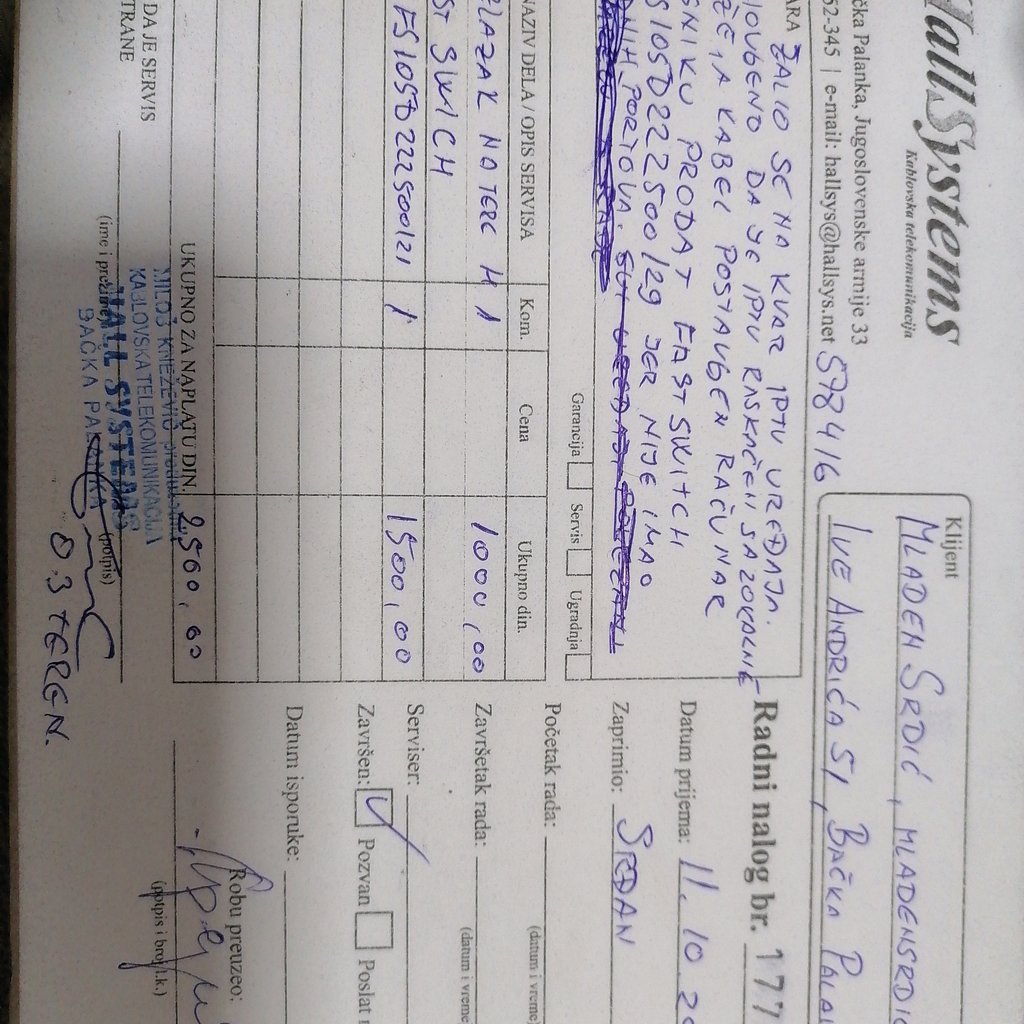 HallSystems
Kablovska telekomunikacija
čka Palanka, Jugoslovenske armije 33
62-345 | e-mail: hallsys@hallsys.net 578416
Klijent
MLADEN SRDIĆ, MLADENSRDIĆ
IVE ANDRIĆA 51, BAČKA PALA
ARA ŽALIO SE NA KVAR IPTV UREĐAJA.
DA JE IPTV RASKAČEN SA ZOVALNE
ŽE, A KABEL POSTAVLJEN RAČUNAR
SNIKU PRODAT FAST SWITCH
S105D222500129 JER NIJE IMAO
DNIH PORTOVA.
Garancija Servis Ugradnja
Radni nalog br. 177
Datum prijema: 11.10.20
Zaprimio: SRĐAN
Početak rada:
(datum i vreme)
Završetak rada:
(datum i vreme)
Serviser:
Završen: Pozvan Poslat
Datum isporuke:
Robu preuzeo:
(potpis i broj l.k.)
NAZIV DELA / OPIS SERVISA Kom. Cena Ukupno din.
ZLAZAK NA TEREN 1 1000,00
ST SWICH
FS105D222500121 1 1500,00
UKUPNO ZA NAPLATU DIN. 2500,00
DA JE SERVIS
TRANE
(ime i prezime) (potpis)
MILOŠ KNEŽEVIĆ preduzetnik
KABLOVSKA TELEKOMUNIKACIJA
HALL SYSTEMS
BAČKA PALANKA
0.3 TEREN.